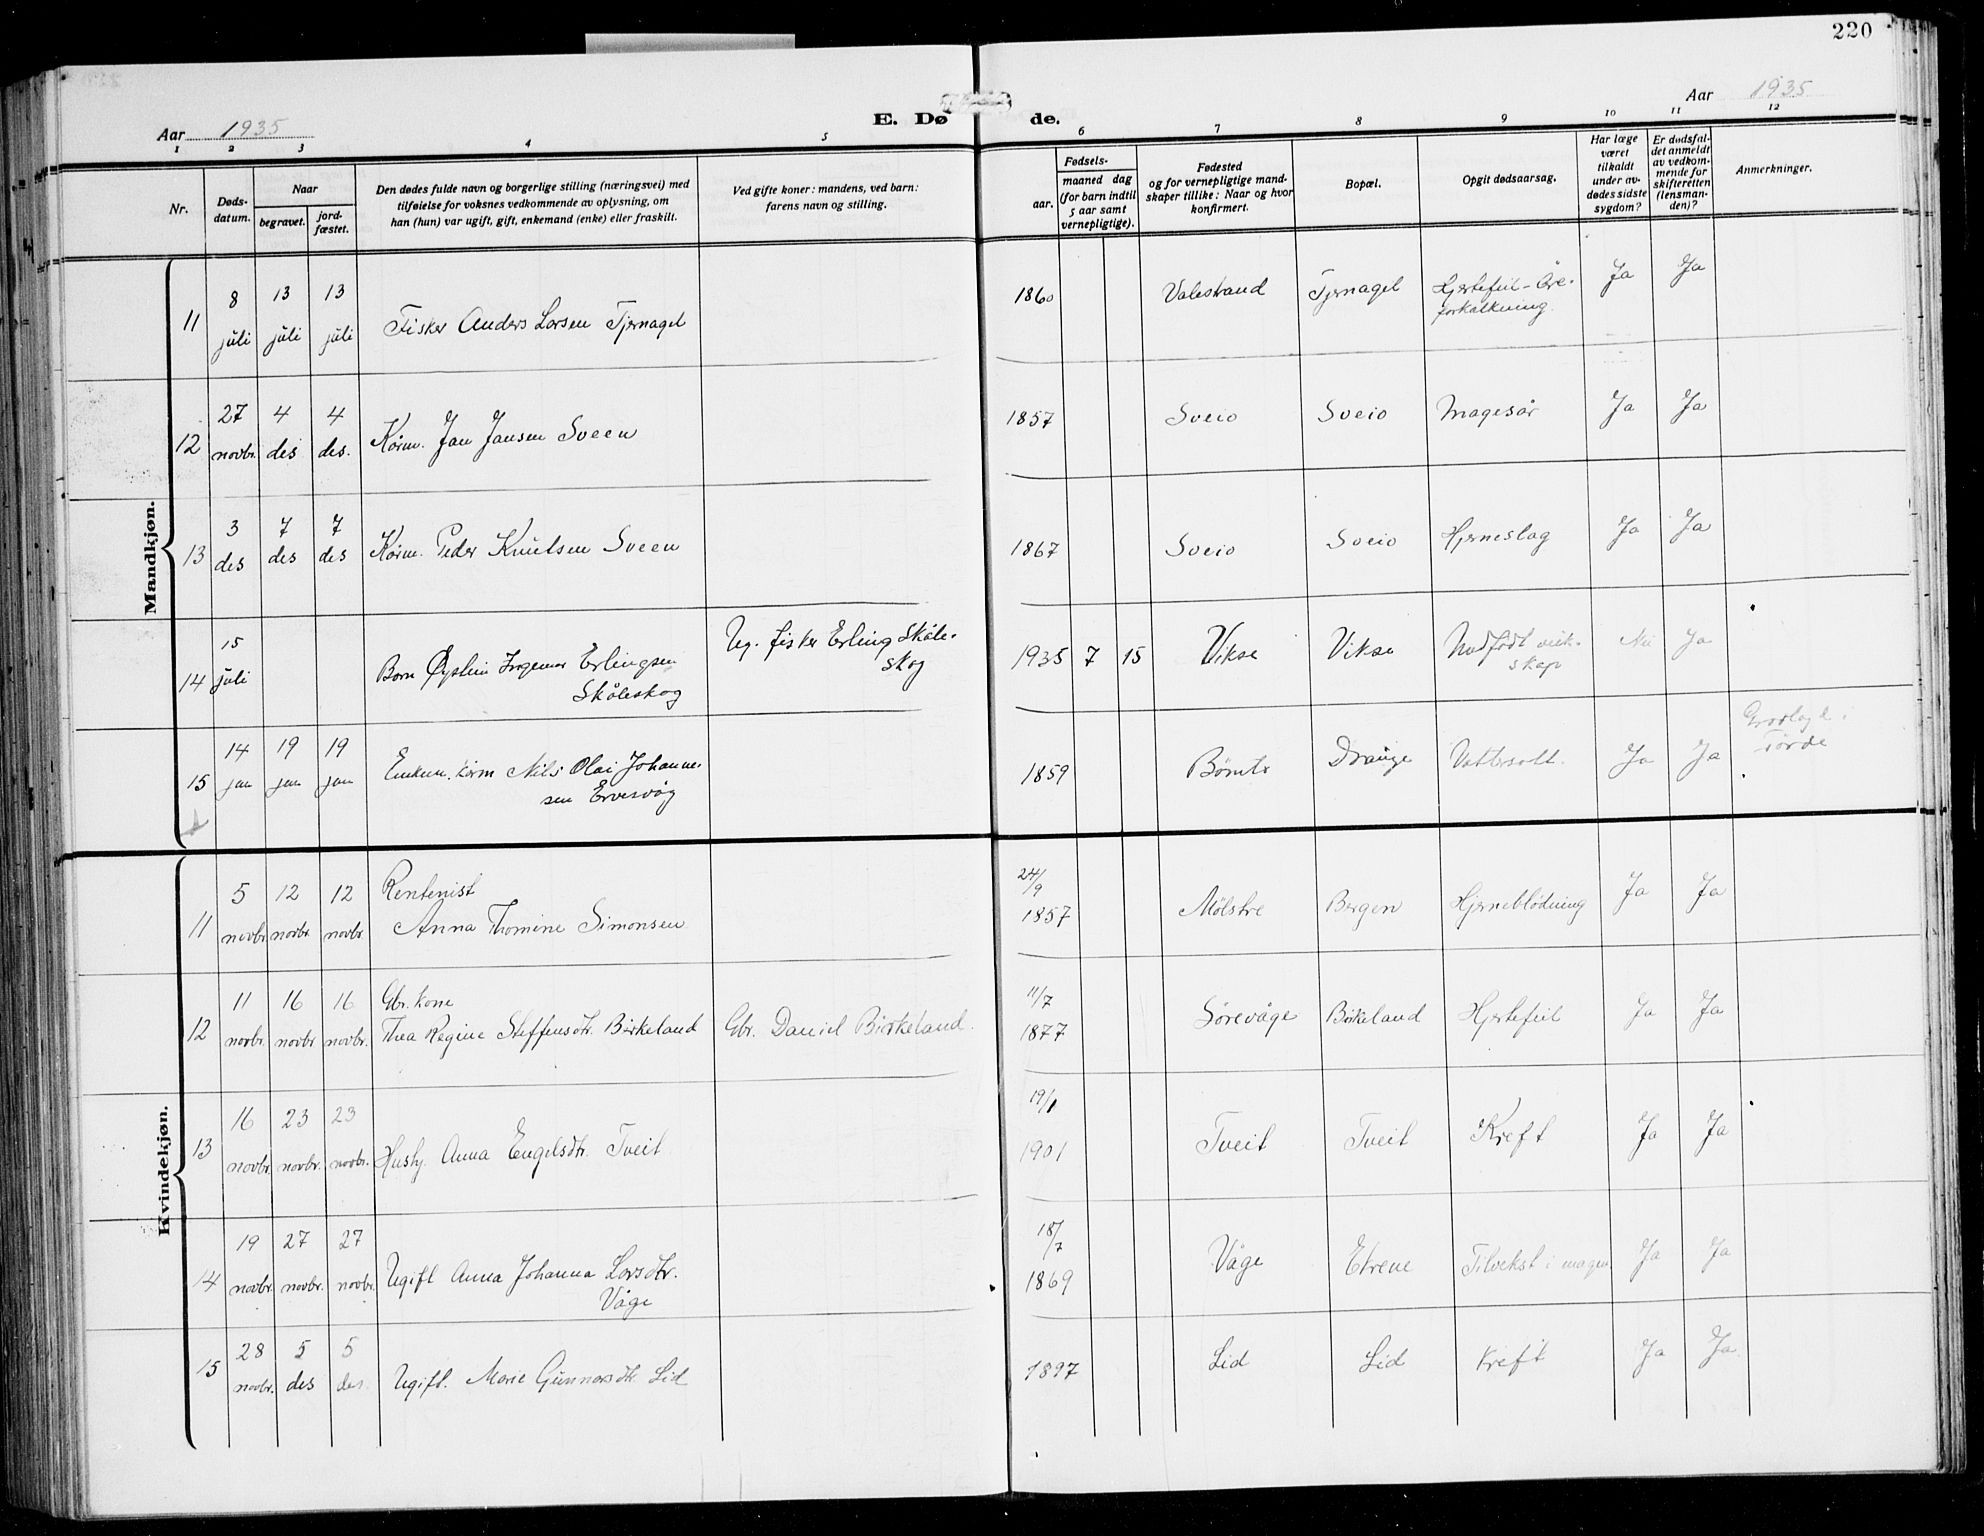 220
Aar 1935
E. Dø de.
Aar 1935
1 2 3 4 5 6 7 8 9 10 11 12
Nr.
Døds-
datum.
Naar
begravet.
jord-
fæstet.
Den dødes fulde navn og borgerlige stilling (næringsvei) med
tilføielse for voksnes vedkommende av oplysning, om
han (hun) var ugift, gift, enkemand (enke) eller fraskilt.
Ved gifte koner: mandens, ved barn:
farens navn og stilling.
Fødsels-
aar.
maaned dag
(for barn indtil
5 aar samt
vernepligtige).
Fødested
og for vernepligtige mand-
skaper tillike: Naar og hvor
konfirmert.
Bopæl.
Opgit dødsaarsag.
Har læge
været
tilkaldt
under av-
dødes sidste
sygdom?
Er dødsfal-
det anmeldt
av vedkom-
mende for
skifteretten
(lensman-
den)?
Anmerkninger.
Mandkjøn.
11 8 juli 13 juli 13 juli Fisker Anders Larsen Tjernagel 1860 Valestrand Tjernagel Hjertefeil - Åre-
forkalkning. Ja Ja
12 27 novbr. 4 des 4 des. Kårm. Jan Jansen Sveen 1857 Sveio Sveio Magesår Ja Ja
13 3 des 7 des 7 des Kårm. Peder Knutsen Sveen 1867 Sveio Sveio Hjerneslag Ja Ja
14 15 juli Barn Øystein Ingemar Erlingsen
Skåleskog Ug. fisker Erling Skåle-
skog 1935 7 15 Vikse Vikse Medfødt veik-
skap Nei Ja
15 14 jan 19 jan 19 jan Enkem. kårm Nils Olai Johanne-
sen Ervesvåg 1859 Bømlo Drange Vattersott. Ja Ja Gravlagt i
Førde
Kvindekjøn.
11 5 novbr 12 novbr. 12 novbr. Rentenist
Anna Thomine Simonsen 24/9 1857 Mølstre Bergen Hjerneblödning Ja Ja
12 11 novbr. 16 novbr 16 novbr. Gbr. kone
Thea Regine Steffensdtr. Birkeland Gbr. Daniel Birkeland. 11/7 1877 Sörevåge Birkeland Hjertefeil Ja Ja
13 16 novbr. 23 novbr. 23 novbr. Hushj. Anna Engelsdtr. Tveit 19/1 1901 Tveit Tveit Kreft Ja Ja
14 19 novbr. 27 novbr. 27 novbr. Ugift Anna Johanna Larsdtr.
Våge 18/7 1869 Våge Etrene Tilvekst i magen Ja Ja
15 28 novbr. 5 des 5 des. Ugift. Marie Gunnarsdtr. Lid 1897 Lid Lid Kreft Ja Ja